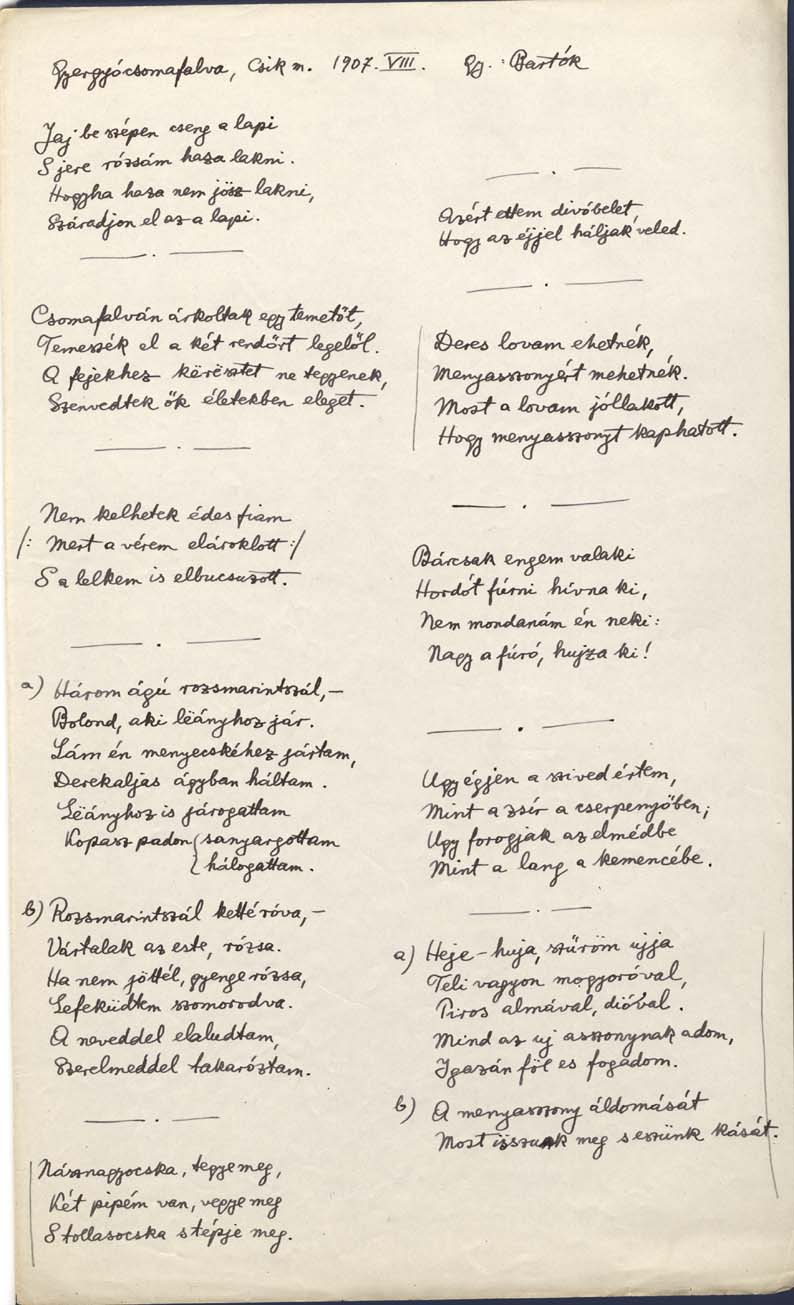 Gyergyócsomafalva, Csik m. 1907. VIII. Gy.: Bartók
Jaj be szépen cseng a lapi
S jere rózsám haza lakni.
Hogyha haza nem jösz lakni,
Száradjon el az a lapi.
Csomafalván árkoltak egy temetőt,
Temeszék el a két rendőrt legelől.
A fejekhez kërësztet ne tegyenek,
Szenvedtek ők életekben eleget.
Nem kelhetek édes fiam
/: Mert a vérem elároklott :/
S a lelkem is elbucsuzott.
a) Három ágú rozsmarintszál,–
Bolond, aki lëányhoz jár.
Lám én menyecskéhez jártam,
Derekaljas ágyban háltam.
Lëányhoz is járogattam
Kopasz padon { sanyargottam
{ hálogattam.
b) Rozsmarintszál ketté róva,–
Vártalak az este, rózsa.
Ha nem jöttél, gyenge rózsa,
Lefeküdtem szomorodva.
A neveddel elaludtam,
Szerelmeddel takaróztam.
Násznagyocska, tegye meg,
Két pipém van, vegye meg
S tollasocska s tépje meg.
Azért ettem divóbelet,
Hogy az éjjel háljak veled.
Deres lovam ehetnék,
Menyasszonyért mehetnék.
Most a lovam jóllakott,
Hogy menyasszonyt kaphatott.
Bárcsak engem valaki
Hordót fúrni hívna ki,
Nem mondanám én neki:
Nagy a fúró, hujza ki!
Ugy égjen a szived értem,
Mint a zsír a cserpenyőben;
Ugy forogjak az elmédbe
Mint a lang a kemencébe.
a) Heje-huja, szűröm ujja
Teli vagyon mogyoróval,
Piros almával, dióval.
Mind az uj asszonynak adom,
Igazán föl es fogadom.
b) A menyasszony áldomását
Most isszunk meg s eszünk kását.